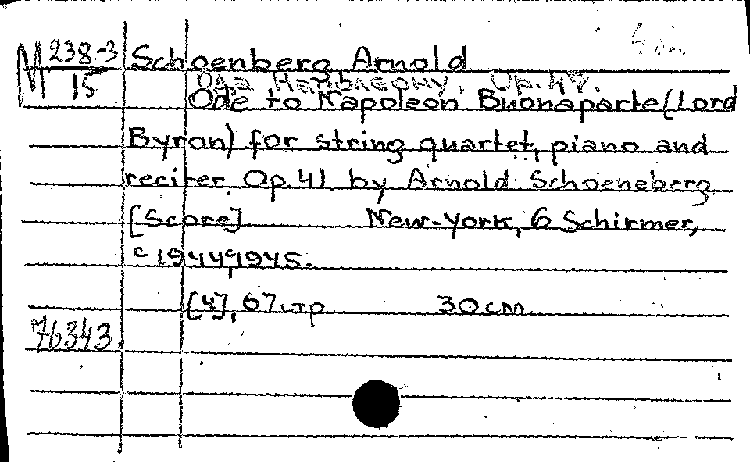 M 238-3/15
Schoenberg Arnold
Ода Наполеону, Op.
Ode to Napoleon Buonaparte (Lord
Byron) for string quartet, piano and
reciter Op. 41 by Arnold Schoeneberg
[Score] New-York, G Schirmer,
c 1944, 1945.
[4], 67 стр 30 cm
76343